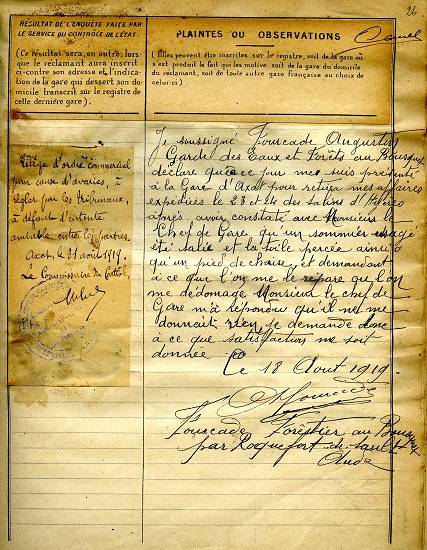 26
RÉSULTAT DE L'ENQUÊTE FAITE PAR
LE SERVICE DU CONTRÔLE DE L'ÉTAT.
(Ce résultat sera, en outre, lors-
que le réclamant aura inscrit
ci-contre son adresse et l'indica-
tion de la gare qui dessert son
domicile transcrit sur le registre de
cette dernière gare).
PLAINTES OU OBSERVATIONS
(Elles peuvent être inscrites sur le registre, soit de la gare où
s'est produit le fait qui les motive, soit de la gare du domicile
du réclamant, soit de toute autre gare française au choix de
celui-ci).
Litige d'ordre commercial
pour cause d'avaries, à
régler par les tribunaux,
à défaut d'entente
amiable entre les parties.
Axat, le 31 août 1919.
Le Commissaire du Contrôle,
Je soussigné Fourcade Augustin
Garde des Eaux et Forêts au Bousquet
déclare qu'à ce jour me suis présenté
à la Gare d'Axat pour retirer mes affaires
expédiées le 23 et 24 des Salins d'Hyères
après avoir constaté avec Monsieur le
Chef de Gare qu'un sommier usagé
été salie et la toile percée ainsi
qu'un pied de chaise, et demandant
à ce que l'on me le répare ou l'on
me dédomage Monsieur le chef de
Gare m'a répondu qu'il ne me
donnait rien, je demande donc
à ce que satisfaction me soit
donnée
Le 18 Aout 1919.
Fourcade Forestier au Bousquet
par Roquefort-de-Sault
Aude